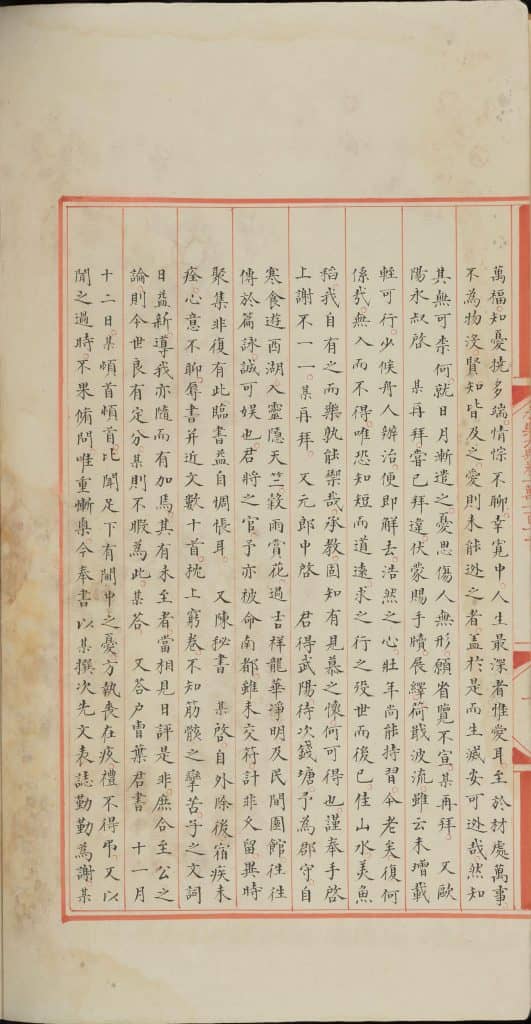 萬福知憂撓多端情悰不聊幸寬中人生最深者惟愛耳至於材處萬事
不為物沒賢知皆及之愛則未能逃之者蓋於是而生滅安可逃哉然知
其無可柰何就日月漸遣之憂思傷人無形願省覽不宣某再拜 又歐
陽永叔啓 某再拜嘗已拜違伏蒙賜手牘展繹荷戢波流雖云未增載
輕可行少候舟人辦治便即解去浩然之心壯年尚能持習今老矣復何
係哉無入而不得唯恐知短而道遠求之行之歿世而後已佳山水美魚
稻我自有之而樂孰能禦哉承教固知有見慕之懷何可得也謹奉手啓
上謝不一一某再拜 又元郎中啓 君得武陽待次錢塘予為郡守自
寒食遊西湖入靈隱天竺穀雨賞花過吉祥龍華淨明及民間園館往往
傳於篇詠誠可娱也君將之官予亦被命南都雖未交符計非久留異時
聚集非復有此臨書益自惆悵耳 又陳秘書 某啓自外除後宿疾未
痊心意不聊辱書并近文數十首枕上窮卷不知筋骸之攣苦子之文詞
日益新導我亦隨而有加焉其有未至者當相見日評是非庶合至公之
論則今世良有定分某則不暇為此某答 又答户曹葉君書 十一月
十二日某頓首頓首比聞足下有閩中之憂方執喪在疚禮不得弔又以
聞之過時不果脩問唯重慚今奉書以某撰次先文表誌勤勤為謝某